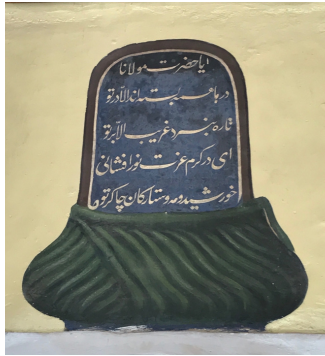 یا حضرت مولانا
درها همه بستند الا در تو
تا ره نبرد غریب الا بر تو
ای در کرم عزت نور افشانی
خورشید و مه و ستارگان چاکر تو